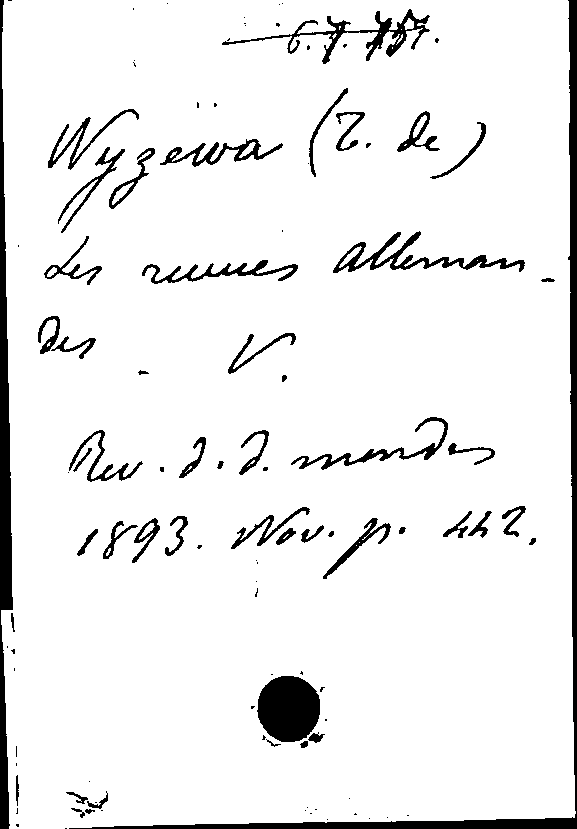 6.7.757.
Wyzewa (T. de)
Les revues alleman-
des - V.
Rev. d. d. mondes
1893. Nov. p. 442.